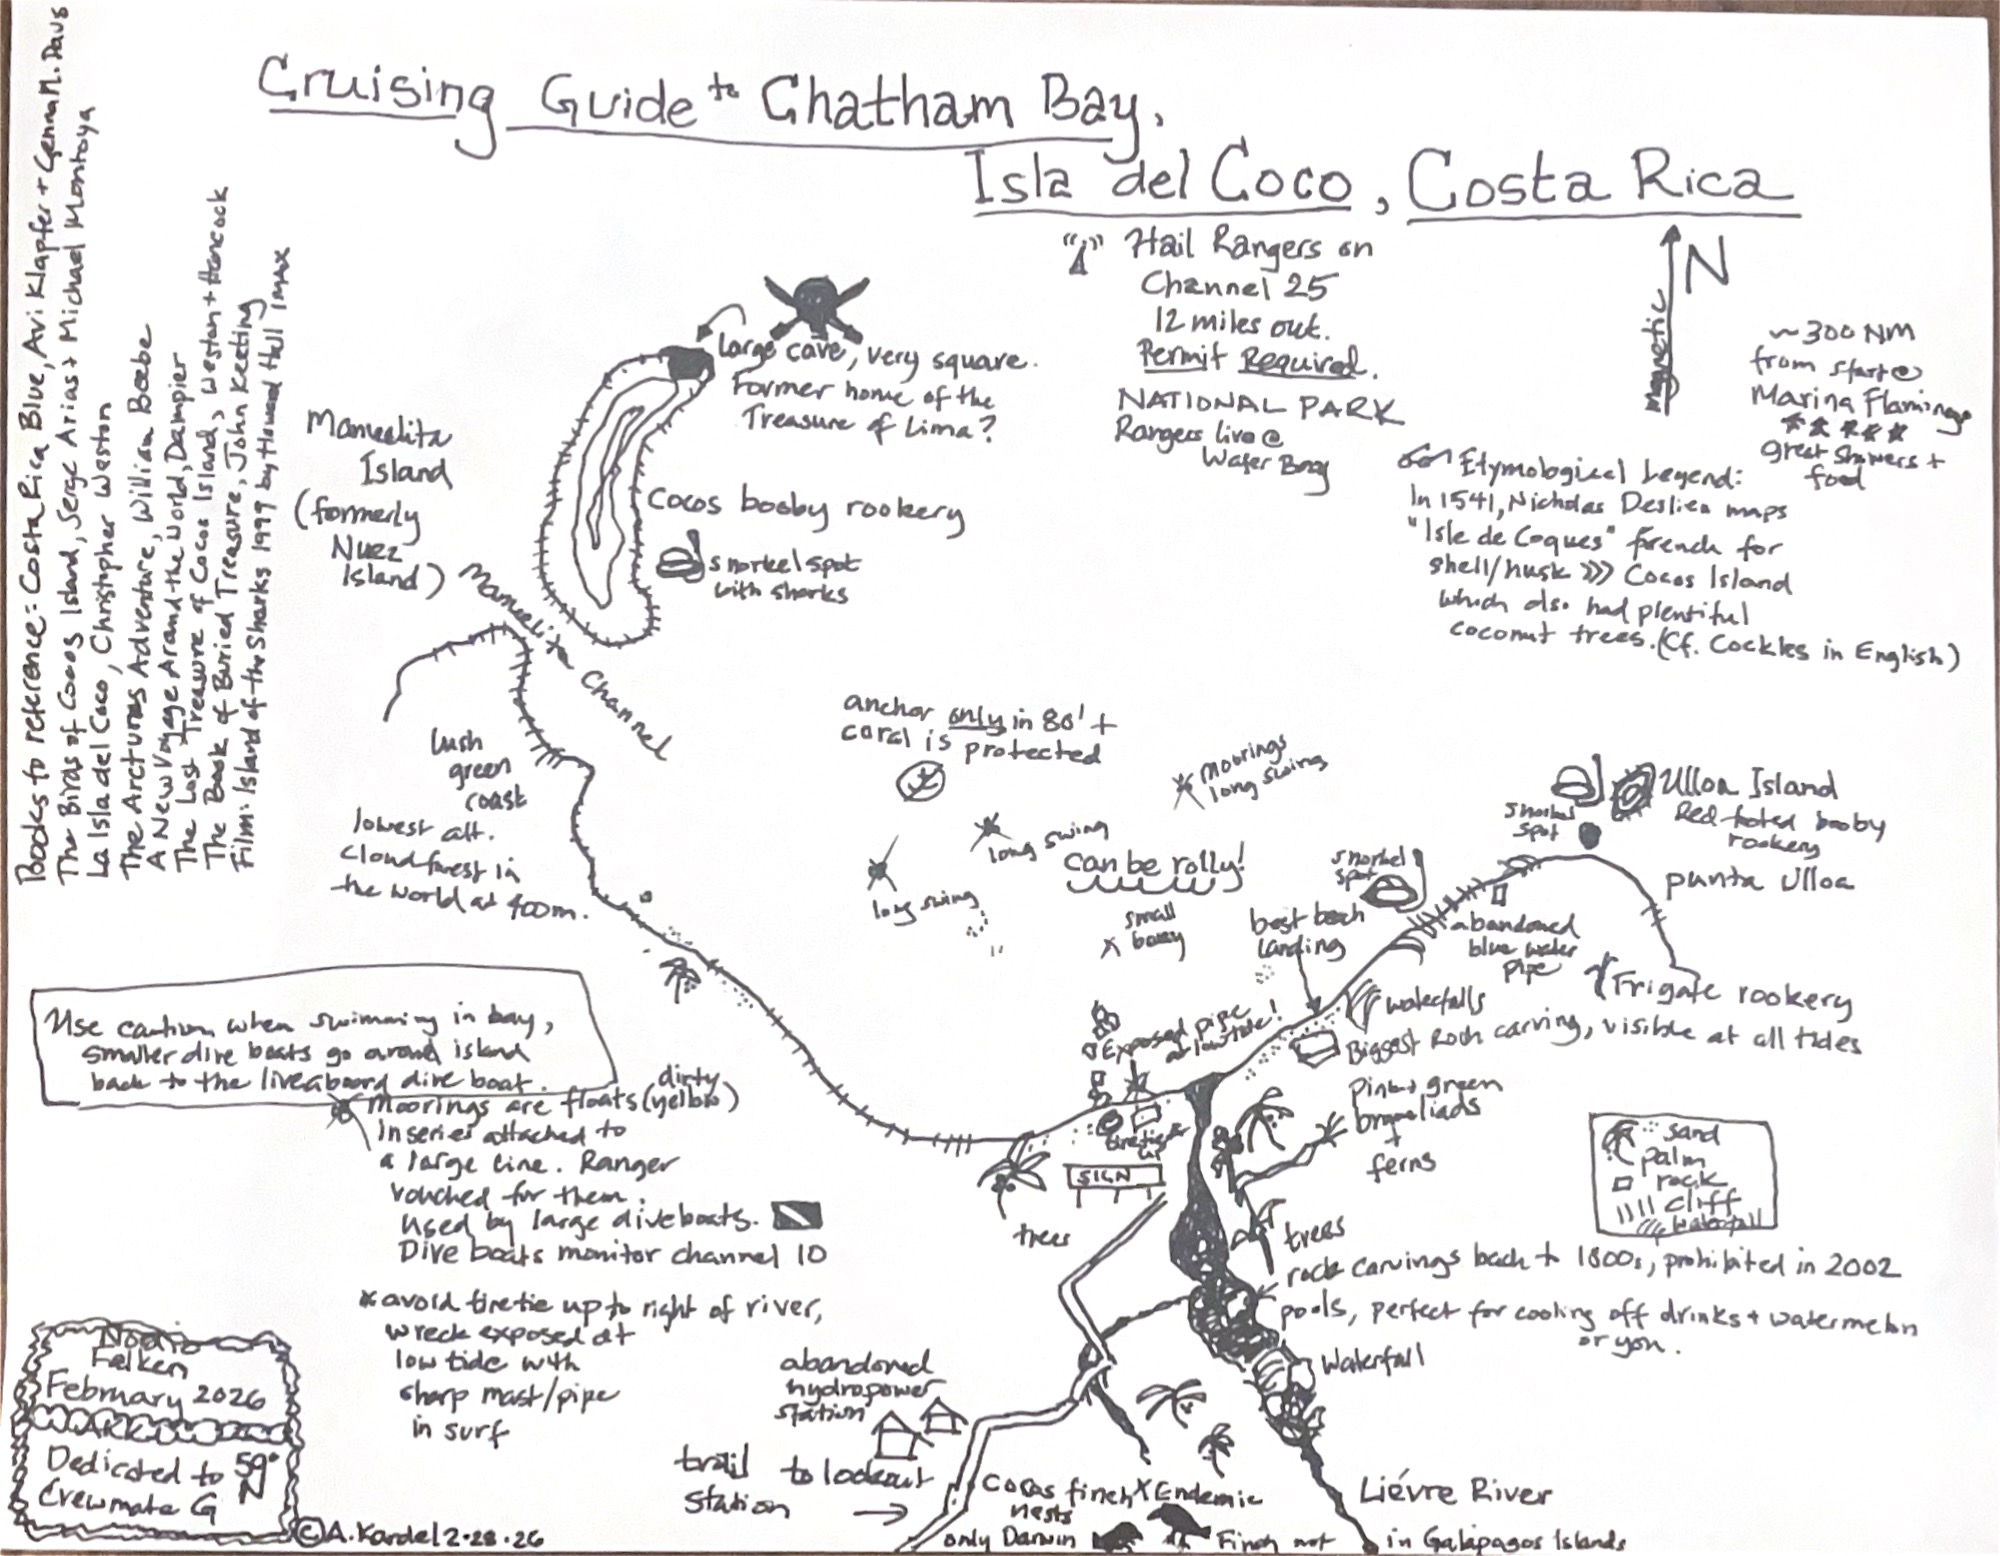 Cruising Guide to Chatham Bay,
Isla del Coco, Costa Rica
Hail Rangers on
Channel 25
12 miles out.
Permit Required.
NATIONAL PARK
Rangers live @
Wafer Bay
N
Magnetic
~300 NM
from start @
Marina Flamingo
great showers +
food
Etymological Legend:
In 1541, Nicholas Deslien maps
"Isle de Coques" french for
shell/husk >>> Cocos Island
which also had plentiful
coconut trees. (Cf. Cockles in English)
Books to reference: Costa Rica Blue, Avi Klapfer + Genna M. Davis
The Birds of Cocos Island, Serge Arias + Michael Montoya
La Isla del Coco, Christopher Weston
The Arcturus Adventure, William Beebe
A New Voyage Around the World, Dampier
The Lost Treasure of Cocos Island, Weston + Hancock
The Book of Buried Treasure, John Keeting
Film: Island of the Sharks 1999 by Howard Hall IMAX
large cave, very square.
Former home of the
Treasure of Lima?
Manuelita
Island
(formerly
Nuez
Island)
Cocos booby rookery
snorkel spot
with sharks
Manuelita Channel
lush
green
coast
lowest alt.
cloudforest in
the world at 400m.
anchor only in 80' +
coral is protected
moorings
long swing
long swing
long swing
can be rolly!
small
buoy
snorkel
spot
Ulloa Island
Red-footed booby
rookery
punta Ulloa
snorkel
spot
best beach
landing
abandoned
blue water
pipe
Frigate rookery
waterfalls
Biggest Rock carving, visible at all tides
Exposed pipe
at low tide!
Use caution when swimming in bay,
smaller dive boats go around island
back to the liveaboard dive boat.
Moorings are floats (dirty yellow)
in series attached to
a large line. Ranger
vouched for them.
Used by large dive boats.
Dive boats monitor channel 10
* avoid tiretie up to right of river,
wreck exposed at
low tide with
sharp mast/pipe
in surf
tiretie
SIGN
trees
pink + green
bromeliads
+
ferns
sand
palm
rock
cliff
waterfall
trees
rock carvings back to 1800s, prohibited in 2002
pools, perfect for cooling off drinks + watermelon
or you.
Waterfall
abandoned
hydropower
station
trail to lookout
station
Cocos finch X Endemic
nests
only Darwin Finch not in Galapagos Islands
Liévre River
Falken
February 2026
Dedicated to 59° N
Crewmate G
© A. Kardel 2·28·26